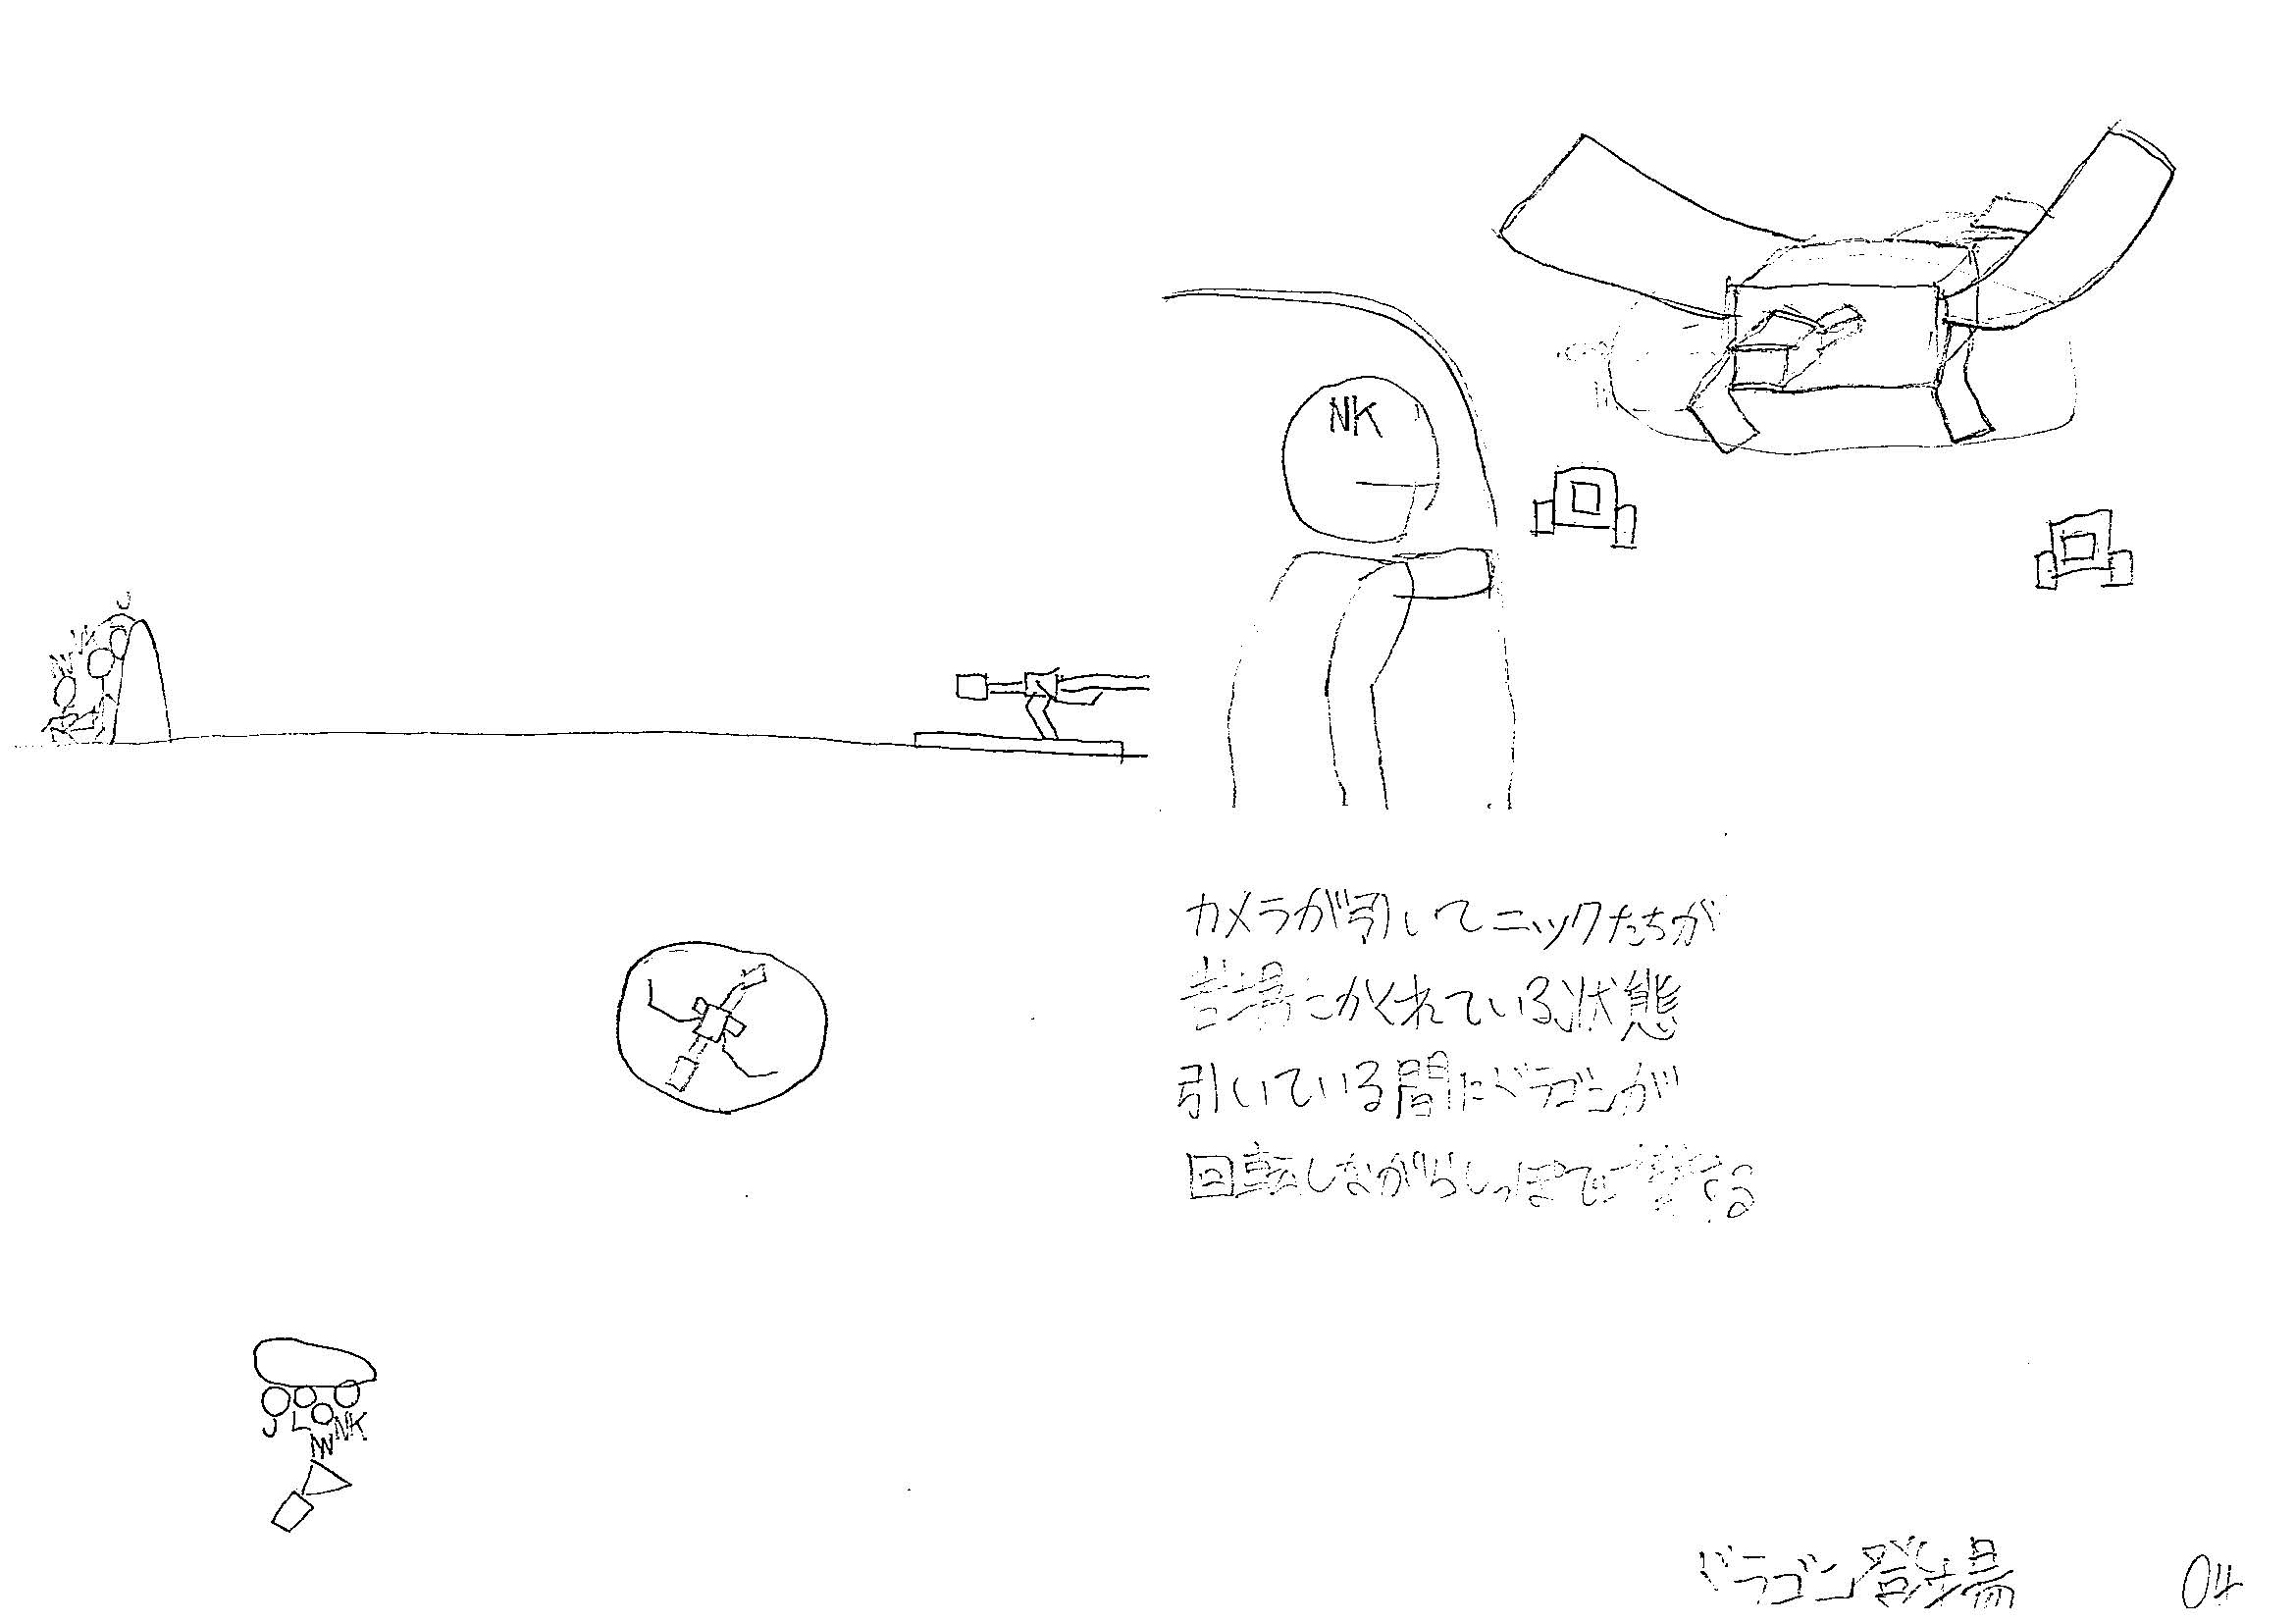 J
NK
NW
NK
カメラが引いてニックたちが
岩場にかくれている状態
引いている間にドラゴンが
回転しながらしっぽで攻撃する
J
L
NK
NW
ドラゴン登場
04